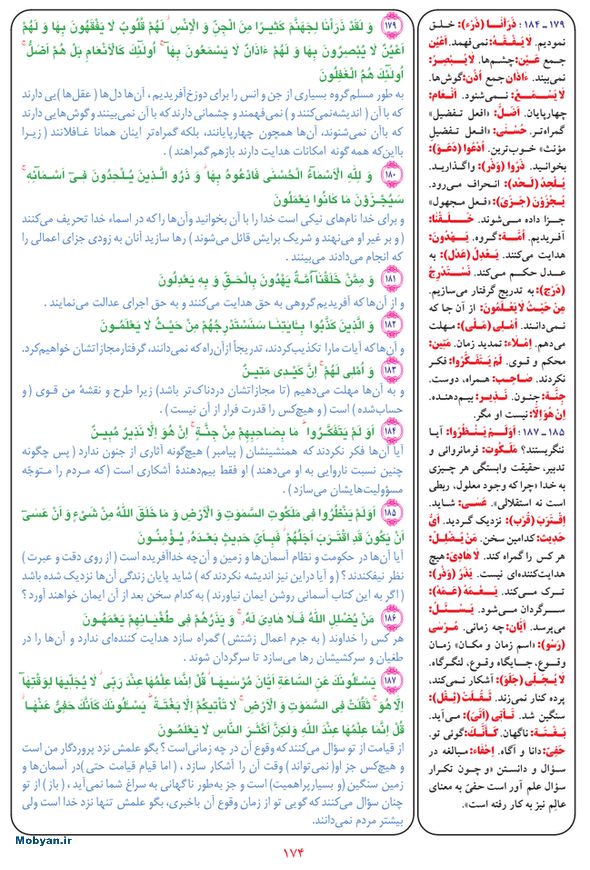 ١٧٩ وَ لَقَدْ ذَرَأْنَا لِجَهَنَّمَ كَثِيرًا مِنَ الْجِنِّ وَ الْإِنْسِ لَهُمْ قُلُوبٌ لَا يَفْقَهُونَ بِهَا وَ لَهُمْ
أَعْيُنٌ لَا يُبْصِرُونَ بِهَا وَ لَهُمْ ءَاذَانٌ لَا يَسْمَعُونَ بِهَا أُولَئِكَ كَالْأَنْعَامِ بَلْ هُمْ أَضَلُّ
أُولَئِكَ هُمُ الْغَافِلُونَ
به طور مسلم گروه بسیاری از جن و انس را برای دوزخ آفریدیم ، آن‌ها دل‌ها ( عقل‌ها )یی دارند
که با آن ( اندیشه نمی‌کنند و ) نمی‌فهمند و چشمانی دارند که با آن نمی‌بینند و گوش‌هایی دارند
که باآن نمی‌شنوند، آن‌ها همچون چهارپایانند، بلکه گمراه‌تر اینان همانا غافلانند ( زیـرا
بااین‌که همه گونه امکانات هدایت دارند بازهم گمراهند ) .
١٨٠ وَ لِلّهِ الْأَسْمَاءُ الْحُسْنَى فَادْعُوهُ بِهَا وَ ذَرُوا الَّذِينَ يُلْحِدُونَ فِى أَسْمَائِهِ
سَيُجْزَوْنَ مَا كَانُوا يَعْمَلُونَ
و برای خدا نام‌های نیکی است خدا را با آن بخوانید وآن‌ها را که در اسماء خدا تحریف می‌کنند
( و بر غیر او می‌نهند و شریک برایش قائل می‌شوند ) رها سازید آنان به زودی جزای اعمالی را
که انجام می‌دادند می‌بینند .
١٨١ وَ مِمَّنْ خَلَقْنَا أُمَّةٌ يَهْدُونَ بِالْحَقِّ وَ بِهِ يَعْدِلُونَ
و از آن‌ها که آفریدیم گروهی به حق هدایت می‌کنند و به حق اجرای عدالت می‌نمایند .
١٨٢ وَ الَّذِينَ كَذَّبُوا بِايَاتِنَا سَنَسْتَدْرِجُهُمْ مِنْ حَيْثُ لَا يَعْلَمُونَ
و آن‌ها که آیات مارا تکذیب کردند، تدریجاً از آن‌راه که نمی‌دانند، گرفتار مجازاتشان خواهیم‌کرد.
١٨٣ وَ أُمْلِى لَهُمْ إِنَّ كَيْدِى مَتِينٌ
و به آن‌ها مهلت می‌دهیم ( تا مجازاتشان دردناک‌تر باشد) زیرا طرح و نقشهٔ من قوی ( و
حساب‌شده ) است ( و هیچ‌کس را قدرت فرار از آن نیست ) .
١٨٤ أَوَ لَمْ يَتَفَكَّرُوا مَا بِصَاحِبِهِمْ مِنْ جِنَّةٍ إِنْ هُوَ إِلَّا نَذِيرٌ مُبِينٌ
آیا آن‌ها فکر نکردند که همنشینشان ( پیامبر ) هیچ‌گونه آثاری از جنون ندارد ( پس چگونه
چنین نسبت ناروایی به او می‌دهند ) او فقط بیم‌دهندهٔ آشکاری است (که مـردم را متوجّه
مسؤولیت‌هایشان می‌سازد ) .
١٨٥ أَوَلَمْ يَنْظُرُوا فِى مَلَكُوتِ السَّمَوَاتِ وَ الْأَرْضِ وَ مَا خَلَقَ اللّهُ مِنْ شَىْءٍ وَ أَنْ عَسَى
أَنْ يَكُونَ قَدِ اقْتَرَبَ أَجَلُهُمْ فَبِأَىِّ حَدِيثٍ بَعْدَهُ يُؤْمِنُونَ
آیا آن‌ها در حکومت و نظام آسمان‌ها و زمین و آن‌چه خداآفریده است ( از روی دقت و عبرت )
نظر نیفکندند؟ ( و آیا دراین نیز اندیشه نکردند که ) شاید پایان زندگی آن‌ها نزدیک شده باشد
( اگر به این کتاب آسمانی روشن ایمان نیاورند ) به کدام سخن بعد از آن ایمان خواهند آورد؟
١٨٦ مَنْ يُضْلِلِ اللّهُ فَلَا هَادِىَ لَهُ وَ يَذَرُهُمْ فِى طُغْيَانِهِمْ يَعْمَهُونَ
هر کس را خداوند ( به جرم اعمال زشتش ) گمراه سازد هدایت کننده‌ای ندارد و آن‌ها را در
طغیان و سرکشیشان رها می‌سازد تا سرگردان شوند .
١٨٧ يَسْئَلُونَكَ عَنِ السَّاعَةِ أَيَّانَ مُرْسَيهَا قُلْ إِنَّمَا عِلْمُهَا عِنْدَ رَبِّى لَا يُجَلِّيهَا لِوَقْتِهَا
إِلَّا هُوَ ثَقُلَتْ فِى السَّمَوَاتِ وَ الْأَرْضِ لَا تَأْتِيكُمْ إِلَّا بَغْتَةً يَسْئَلُونَكَ كَأَنَّكَ حَفِىٌّ عَنْهَا
قُلْ إِنَّمَا عِلْمُهَا عِنْدَ اللّهِ وَ لَكِنَّ أَكْثَرَ النَّاسِ لَا يَعْلَمُونَ
از قیامت از تو سؤال می‌کنند که وقوع آن در چه زمانی‌است ؟ بگو علمش نزد پروردگار من است
و هیچ‌کس جز او( نمی‌تواند ) وقت آن را آشکار سازد ، ( اما قیام قیامت حتی )در آسمان‌ها و
زمین سنگین (و بسیارپراهمیت) است و جز به‌طور ناگهانی به سراغ شما نمی‌آید ، ( باز ) از تو
چنان سؤال می‌کنند که گویی تو از زمان وقوع آن باخبری، بگو علمش تنها نزد خدا است ولی
بیشتر مردم نمی‌دانند.
١٧٩ ـ ١٨٤ : ذَرَأْنـا (ذَرْء): خلـق
نمودیم. لا يَـفْـقَـهُ: نمی‌فهمد. أَعْيُن
جمع عَـيْن: چشم‌ها. لا يُـبْـصِـرُ:
نمی‌بیند. ءَاذان جمع أُذُن: گوش‌ها.
لا يَـسْـمَـعُ: نمی‌شنود. أَنْعـام:
چهارپایان. أَضَـلُّ: «افعل تفضیل»
گمراه‌تر. حُسْنَى: «افعل تفضیل
مؤنث» خوب‌ترین. أُدْعُوا (دَعَوَ):
بخوانید. ذَرُوا (وَذَرَ): واگذارید.
يُلْحِدُ (لَحَدَ): انحراف می‌رود.
يُجْزَوْنَ (جَزَىَ): «فعل مجهول»
جزا داده می‌شوند. خَـلَـقْـنا:
آفریدیم. أُمَّة: گروه. يَهْدُونَ:
هدایت می‌کنند. يَعْدِلُ (عَدْل): به
عدل حکم می‌کند. نَسْتَدْرِجُ
(دَرَج): به تدریج گرفتار می‌سازیم.
مِنْ حَيْثُ لا يَعْلَمُونَ: از آن جا که
نمی‌دانند. أُمْلِى (مَلَىَ): مهلت
می‌دهم. إِمْلاء: تمدید زمان. مَتين:
محکم و قوی. لَمْ يَتَفَكَّرُوا: فکر
نکردند. صاحِب: همراه، دوست.
جِنَّة: جنون. نَذير: بیم‌دهنده.
إِنْ هُوَ إِلّا: نیست او مگر.
١٨٥ ـ ١٨٧ : أَوَلَمْ يَنْظُرُوا: آیـا
ننگریستند؟ مَلَكُوت: فرمانروائی و
تدبیر، حقیقت وابستگی هر چیزی
به خدا (چرا که وجود معلول، ربطی
است نه استقلالی). عَسَى: شاید.
إِقْتَرَبَ (قُرْب): نزدیک گردید. أَىِّ
حَديث: کدامین سخن. مَنْ يُضْلِلْ:
هر کس را گمراه کند. لا هادِىَ: هیچ
هدایت‌کننده‌ای نیست. يَذَرُ (وَذَرَ):
ترک می‌کند. يَـعْـمَـهُ (عَمَهَ):
سرگردان می‌شود. يَـسْـئَـلُ:
می‌پرسد. أَيّان: چه زمانی. مُـرْسَى
(رَسَوَ): «اسم زمان و مکان» زمان
وقوع، جایگاه وقوع، لنگرگاه.
لا يُجَلِّى (جَلَوَ): آشکار نمی‌کند،
پرده کنار نمی‌زند. ثَقُلَتْ (ثِقْل):
سنگین شد. تَأْتِى (أَتَىَ): می‌آید.
بَـغْـتَـة: ناگهان. كَأَنَّكَ: گوئی تو.
حَفِىّ: دانا و آگاه. إِحْفاء: مبالغه در
سؤال و دانستن «و چـون تکـرار
سؤال علم آور است حفیّ به معنای
عالِم نیز به کار رفته است».
١٧٤
Mobyan.ir